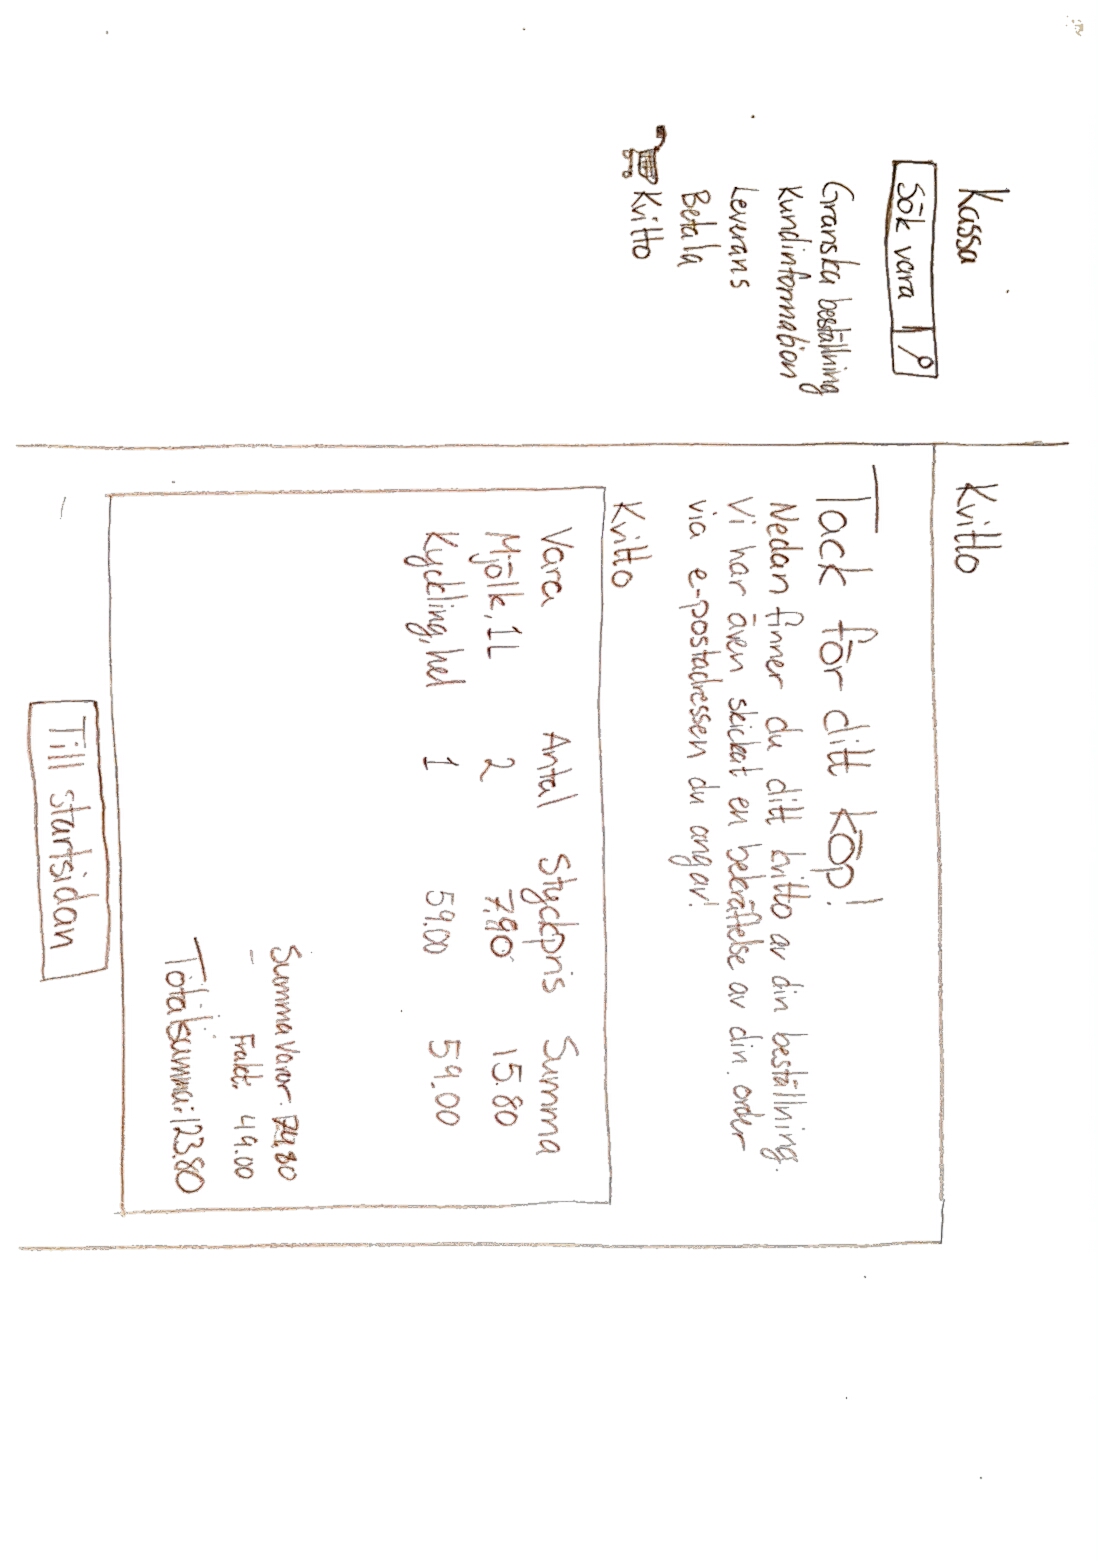 Kassa
Sök vara
Granska beställning
Kundinformation
Leverans
Betala
Kvitto
Kvitto
Tack för ditt köp!
Nedan finner du ditt kvitto av din beställning.
Vi har även skickat en bekräftelse av din order
via e-postadressen du angav!
Kvitto
Vara Antal Styckpris Summa
Mjölk, 1L 2 7,90 15.80
Kyckling, hel 1 59.00 59.00
Summa Varor: 74.80
Frakt: 49.00
Totalsumma: 123.80
Till startsidan